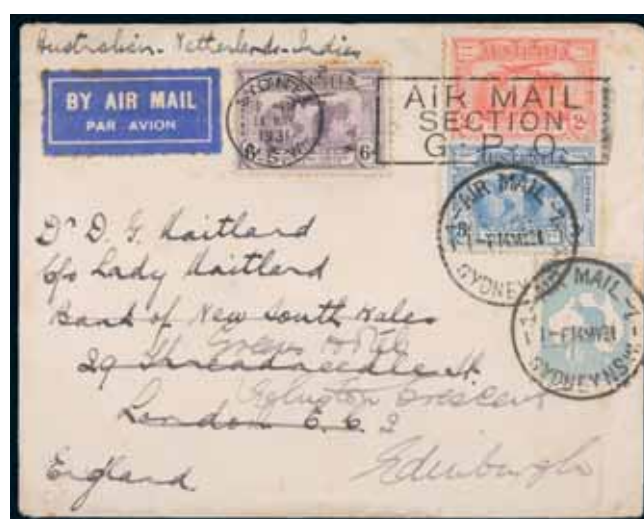 Australian - Netherlands - Indies
BY AIR MAIL
PAR AVION
AUSTRALIA
SYDNEY
1931
N.S.W.
6
AIR MAIL
SECTION
G.P.O.
AIR MAIL
1-F14MY31
SYDNEY
AIR MAIL
1-F14MY31
SYDNEY N.S.W.
Dr D. G. Maitland
c/o Lady Maitland
Bank of New South Wales
29 Threadneedle St.
London E.C. 2
England
Hotel
Eglinton Crescent
Edinburgh